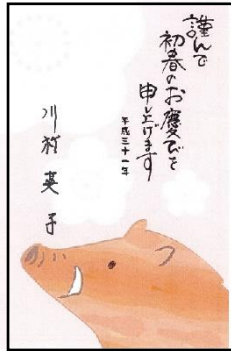 謹んで
初春のお慶びを
申し上げます
平成三十一年
川村英子